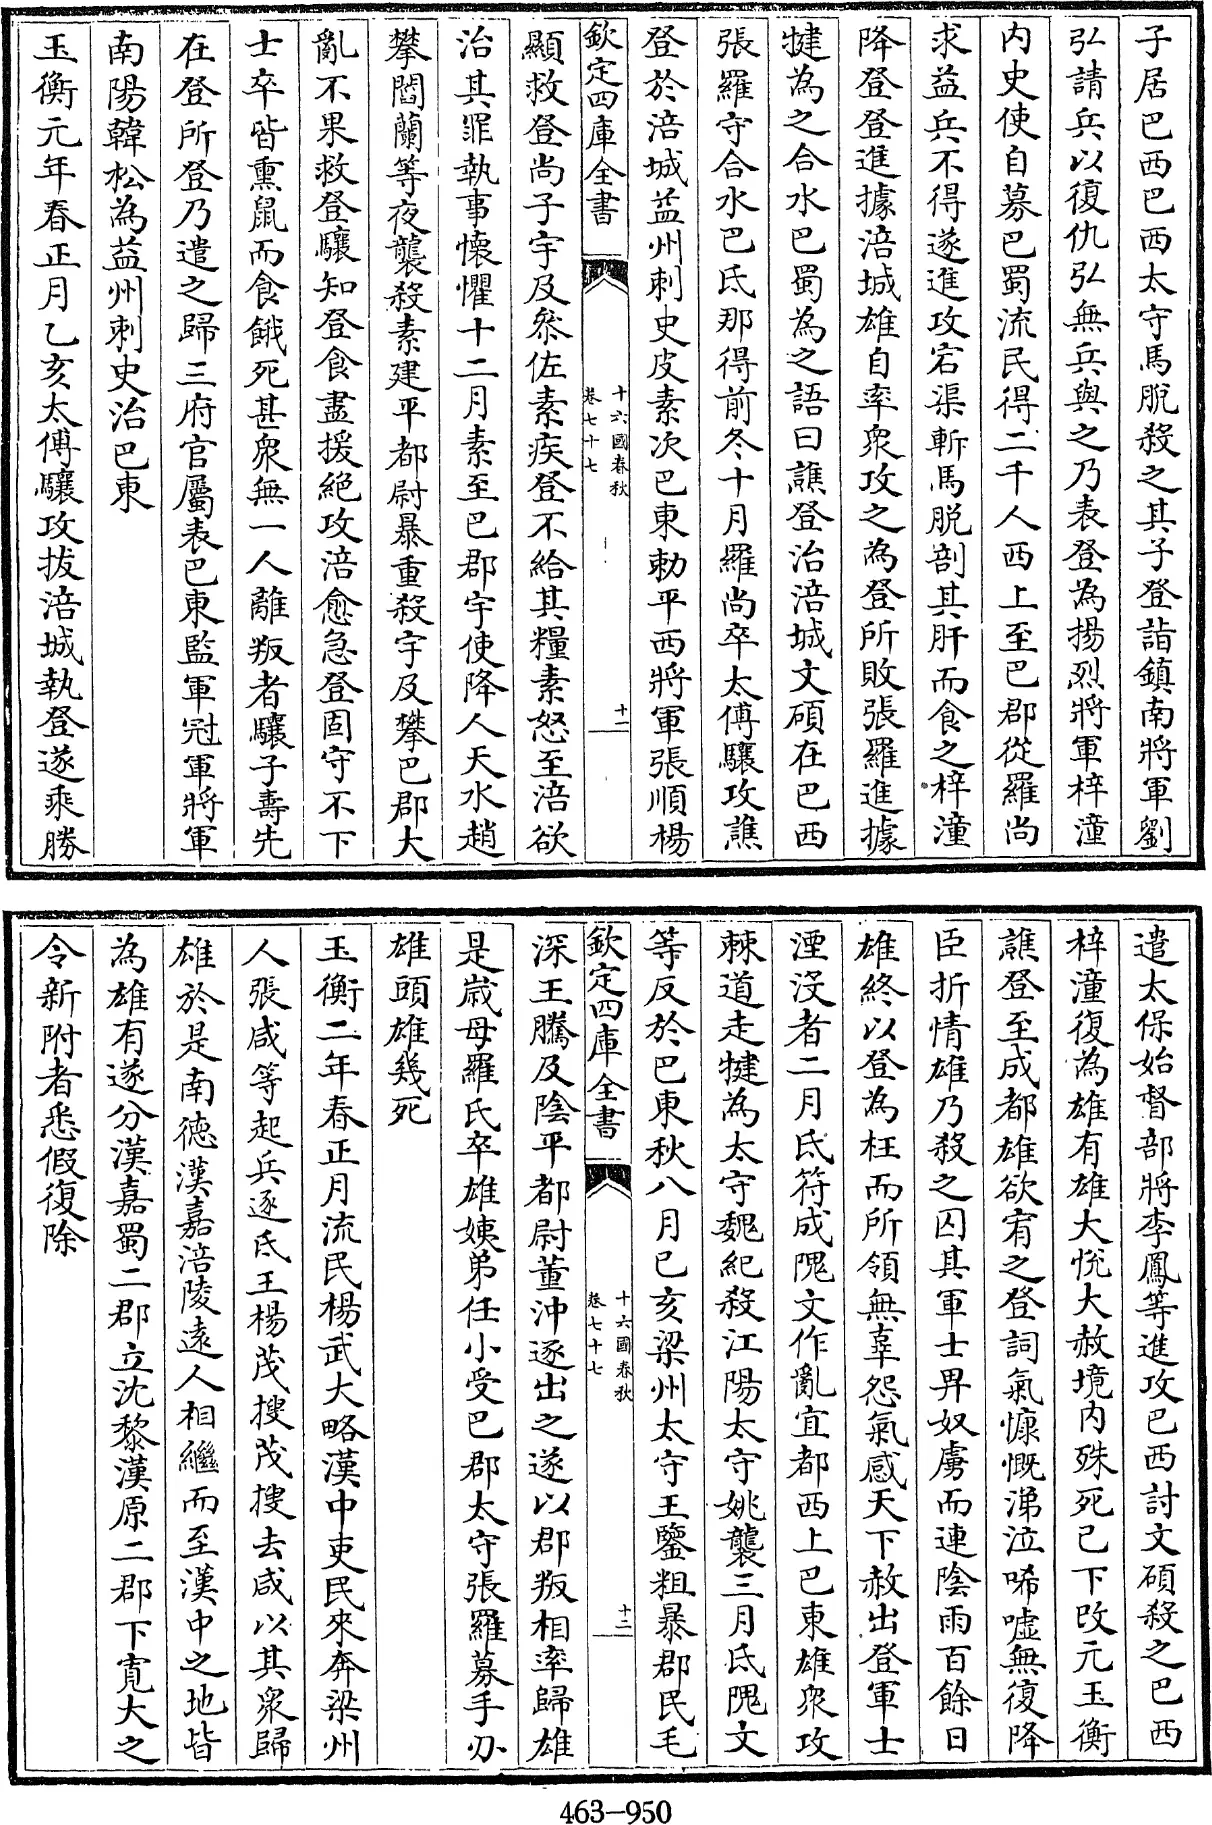 子居巴西巴西太守馬脫殺之其子登詣鎮南將軍劉
弘請兵以復仇弘無兵與之乃表登為揚烈將軍梓潼
内史使自募巴蜀流民得二千人西上至巴郡從羅尚
求益兵不得遂進攻宕渠斬馬脱剖其肝而食之梓潼
降登登進據涪城雄自率衆攻之為登所敗張羅進據
犍為之合水巴蜀為之語曰譙登治涪城文碩在巴西
張羅守合水巴氐那得前冬十月羅尚卒太傅驤攻譙
登於涪城益州刺史皮素次巴東勅平西將軍張順楊
欽定四庫全書
十六國春秋
卷七十七
十一
顯救登尚子宇及叅佐素疾登不給其糧素怒至涪欲
治其罪執事懷懼十二月素至巴郡宇使降人天水趙
攀閻蘭等夜襲殺素建平都尉暴重殺宇及攀巴郡大
亂不果救登驤知登食盡援絶攻涪愈急登固守不下
士卒皆熏鼠而食餓死甚衆無一人離叛者驤子壽先
在登所登乃遣之歸三府官屬表巴東監軍冠軍將軍
南陽韓松為益州刺史治巴東
玉衡元年春正月乙亥太傅驤攻拔涪城執登遂乘勝
遣太保始督部將李鳳等進攻巴西討文碩殺之巴西
梓潼復為雄有雄大悅大赦境内殊死已下改元玉衡
譙登至成都雄欲宥之登詞氣慷慨涕泣唏噓無復降
臣折情雄乃殺之囚其軍士畀奴虜而連陰雨百餘日
雄終以登為枉而所領無辜怨氣感天下赦出登軍士
湮没者二月氐符成隗文作亂宜都西上巴東雄衆攻
棘道走犍為太守魏紀殺江陽太守姚襲三月氐隗文
等反於巴東秋八月己亥梁州太守王鑒粗暴郡民毛
欽定四庫全書
十六國春秋
卷七十七
十二
深王騰及陰平都尉董沖逐出之遂以郡叛相率歸雄
是歲母羅氏卒雄姨弟任小受巴郡太守張羅募手刃
雄頭雄幾死
玉衡二年春正月流民楊武大略漢中吏民來奔梁州
人張咸等起兵逐氐王楊茂搜茂搜去咸以其衆歸
雄於是南德漢嘉涪陵遠人相繼而至漢中之地皆
為雄有遂分漢嘉蜀二郡立沈黎漢原二郡下寬大之
令新附者悉假復除
463-950